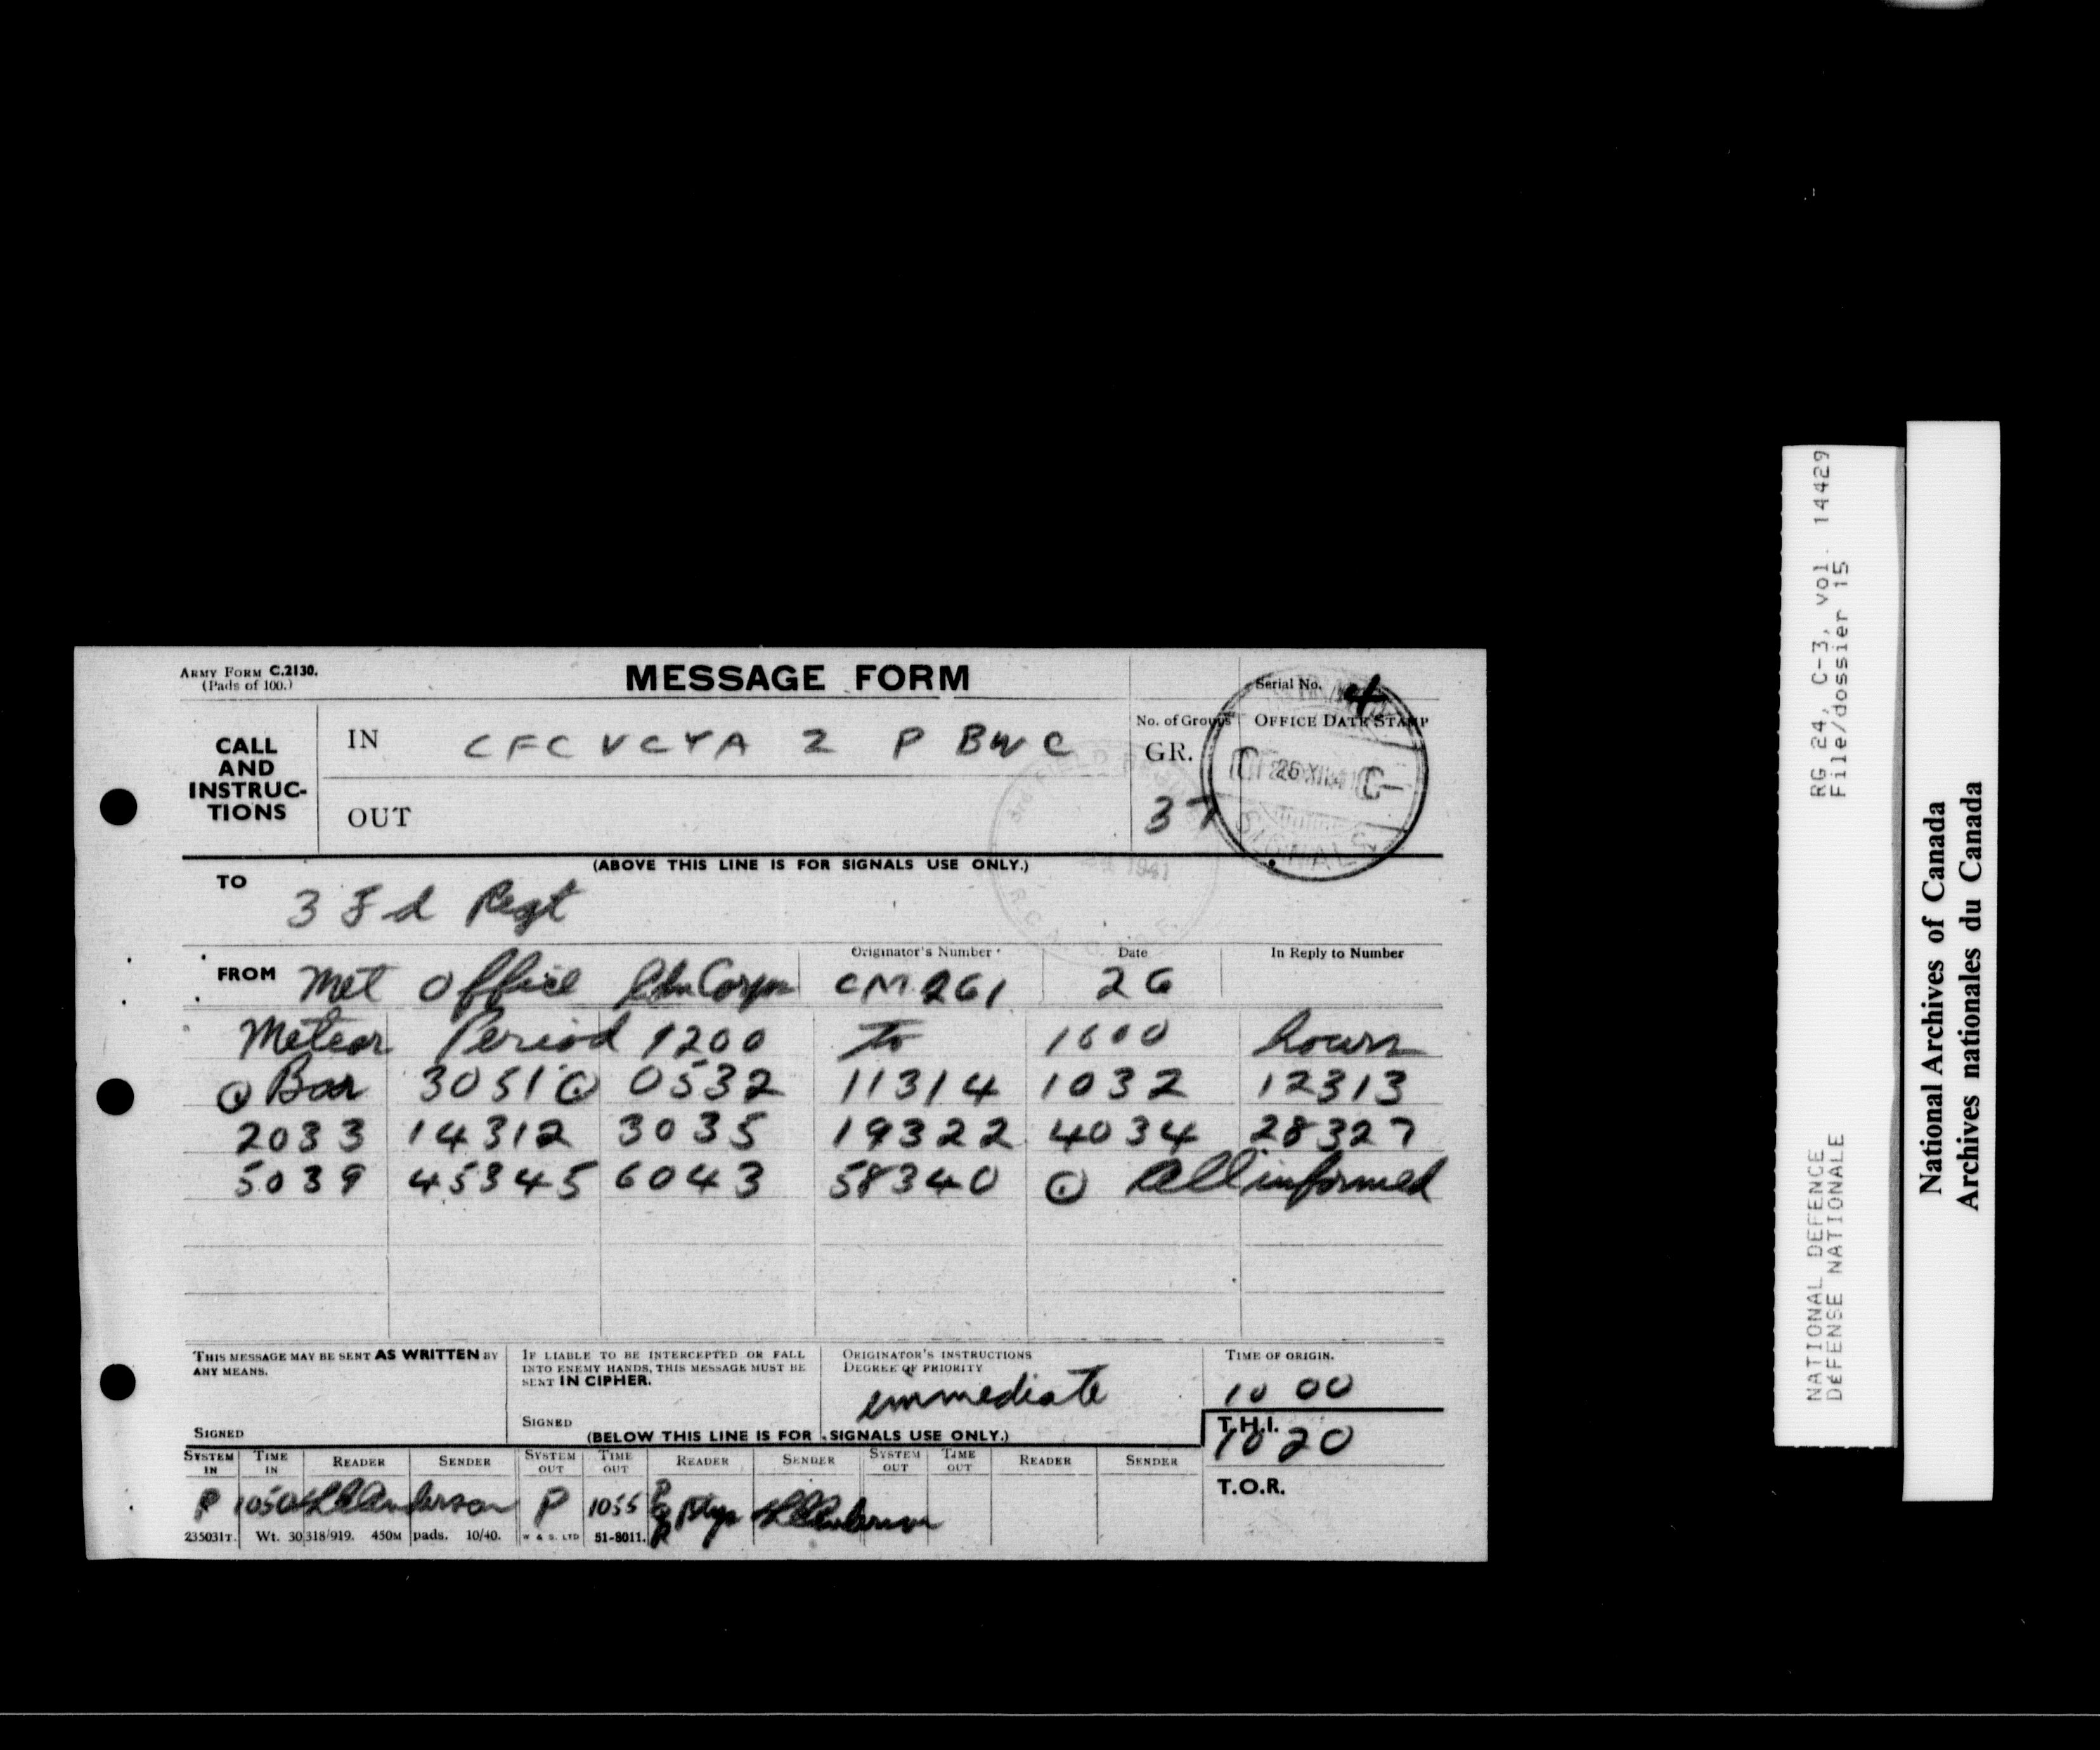 ARMY FORM C.2130.
(Pads of 100.)
MESSAGE FORM
Serial No. 4
CALL AND INSTRUC-TIONS
IN CFC V CYA 2 P BWC
OUT
No. of Groups
GR.
37
OFFICE DATE STAMP
26 XII 41
SIGNALS
3rd FIELD
1941
R.C.A.
(ABOVE THIS LINE IS FOR SIGNALS USE ONLY.)
TO
3 Fd Regt
FROM Met Office Cdn Corps
Originator's Number
CM 261
Date
26
In Reply to Number
Meteor Period 1200 to 1600 hours
⊙ Bar 3051 ⊙ 0532 11314 1032 12313
2033 14312 3035 19322 4034 28327
5039 45345 6043 58340 ⊙ All informed
THIS MESSAGE MAY BE SENT AS WRITTEN BY ANY MEANS.
SIGNED
IF LIABLE TO BE INTERCEPTED OR FALL INTO ENEMY HANDS, THIS MESSAGE MUST BE SENT IN CIPHER.
SIGNED
ORIGINATOR'S INSTRUCTIONS
DEGREE OF PRIORITY
immediate
TIME OF ORIGIN.
10 00
T.H.I.
1020
T.O.R.
(BELOW THIS LINE IS FOR SIGNALS USE ONLY.)
SYSTEM IN TIME IN READER SENDER SYSTEM OUT TIME OUT READER SENDER SYSTEM OUT TIME OUT READER SENDER
P 1050 Anderson P 1055
235031T. Wt. 30,318/919. 450M pads. 10/40. W & S. LTD 51-8011.
RG 24, C-3, vol. 14429
File/dossier 15
NATIONAL DEFENCE
DÉFENSE NATIONALE
National Archives of Canada
Archives nationales du Canada